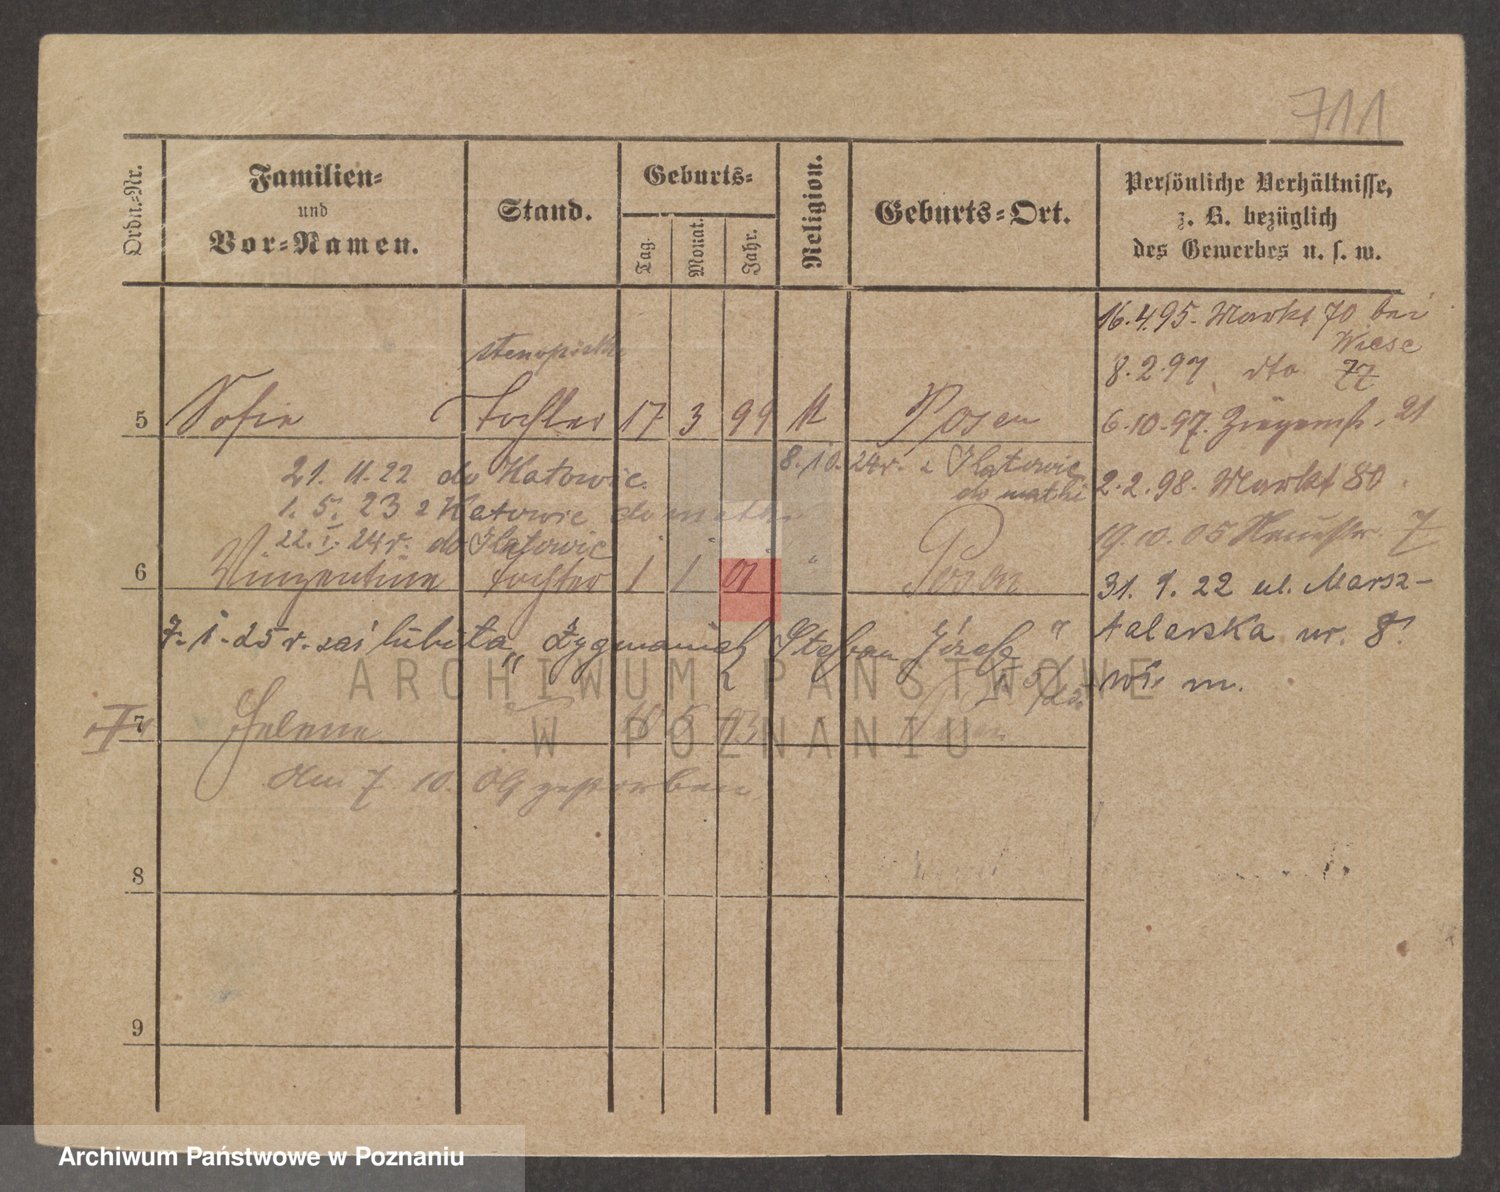 711
Ordn.-Nr.
Familien-
und
Vor-Namen.
Stand.
Geburts-
Tag.
Monat.
Jahr.
Religion.
Geburts-Ort.
Persönliche Verhältnisse,
z. B. bezüglich
des Gewerbes u. s. w.
16.4.95. Markt 70 bei
Wiese
8.2.97 dto 77
stenopistka
5 Sofie Tochter 17 3 99 k Posen
6.10.97. 21
21. 11. 22 do Katowic.
8.10.24r. z Katowic
do matki
2.2.98. Markt 80.
1. 5. 23 z Katowic do matki
22. I. 24r. do Katowic
19.10.05 7
6 Vinzentina Tochter 1 1 01 " Posen
31. 1. 22 ul. Marsz-
talerska nr. 8.
7. 1. 25 r. Zygmunta Stefan Józef"
m.
7 Helene
am 7. 10. 04 gestorben
8
9
ARCHIWUM PAŃSTWOWE
W POZNANIU
Archiwum Państwowe w Poznaniu